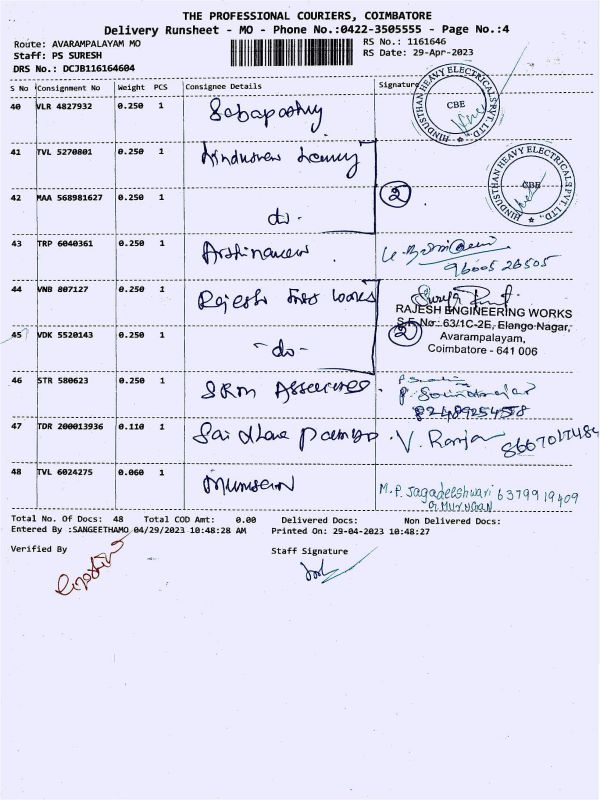 THE PROFESSIONAL COURIERS, COIMBATORE
Delivery Runsheet - MO - Phone No.:0422-3505555 - Page No.:4
Route: AVARAMPALAYAM MO
RS No.: 1161646
Staff: PS SURESH
RS Date: 29-Apr-2023
DRS No.: DCJB116164604
S No Consignment No Weight PCS Consignee Details Signature
HINDUSTHAN HEAVY ELECTRICALS PVT. LTD.
CBE
40 VLR 4827932 0.250 1 Sabapathy
41 TVL 5270801 0.250 1
HINDUSTHAN HEAVY ELECTRICALS PVT. LTD.
CBE
42 MAA 568981627 0.250 1 do. 2
43 TRP 6040361 0.250 1
96005 26505
44 VNB 807127 0.250 1 Rajesh Works
RAJESH ENGINEERING WORKS
S.F.No.: 63/1C-2E, Elango Nagar,
Avarampalayam,
Coimbatore - 641 006
45 VDK 5520143 0.250 1 -do- 2
46 STR 580623 0.250 1 SRM
47 TDR 200013936 0.110 1 Sai V. Ranja
48 TVL 6024275 0.060 1 M.P. Jagadeeshwari 6379919409
Total No. Of Docs: 48 Total COD Amt: 0.00 Delivered Docs: Non Delivered Docs:
Entered By :SANGEETHAMO 04/29/2023 10:48:28 AM Printed On: 29-04-2023 10:48:27
Verified By Staff Signature